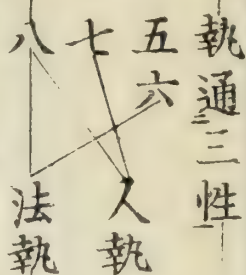 執通三性
五六
七
八
人執
法執